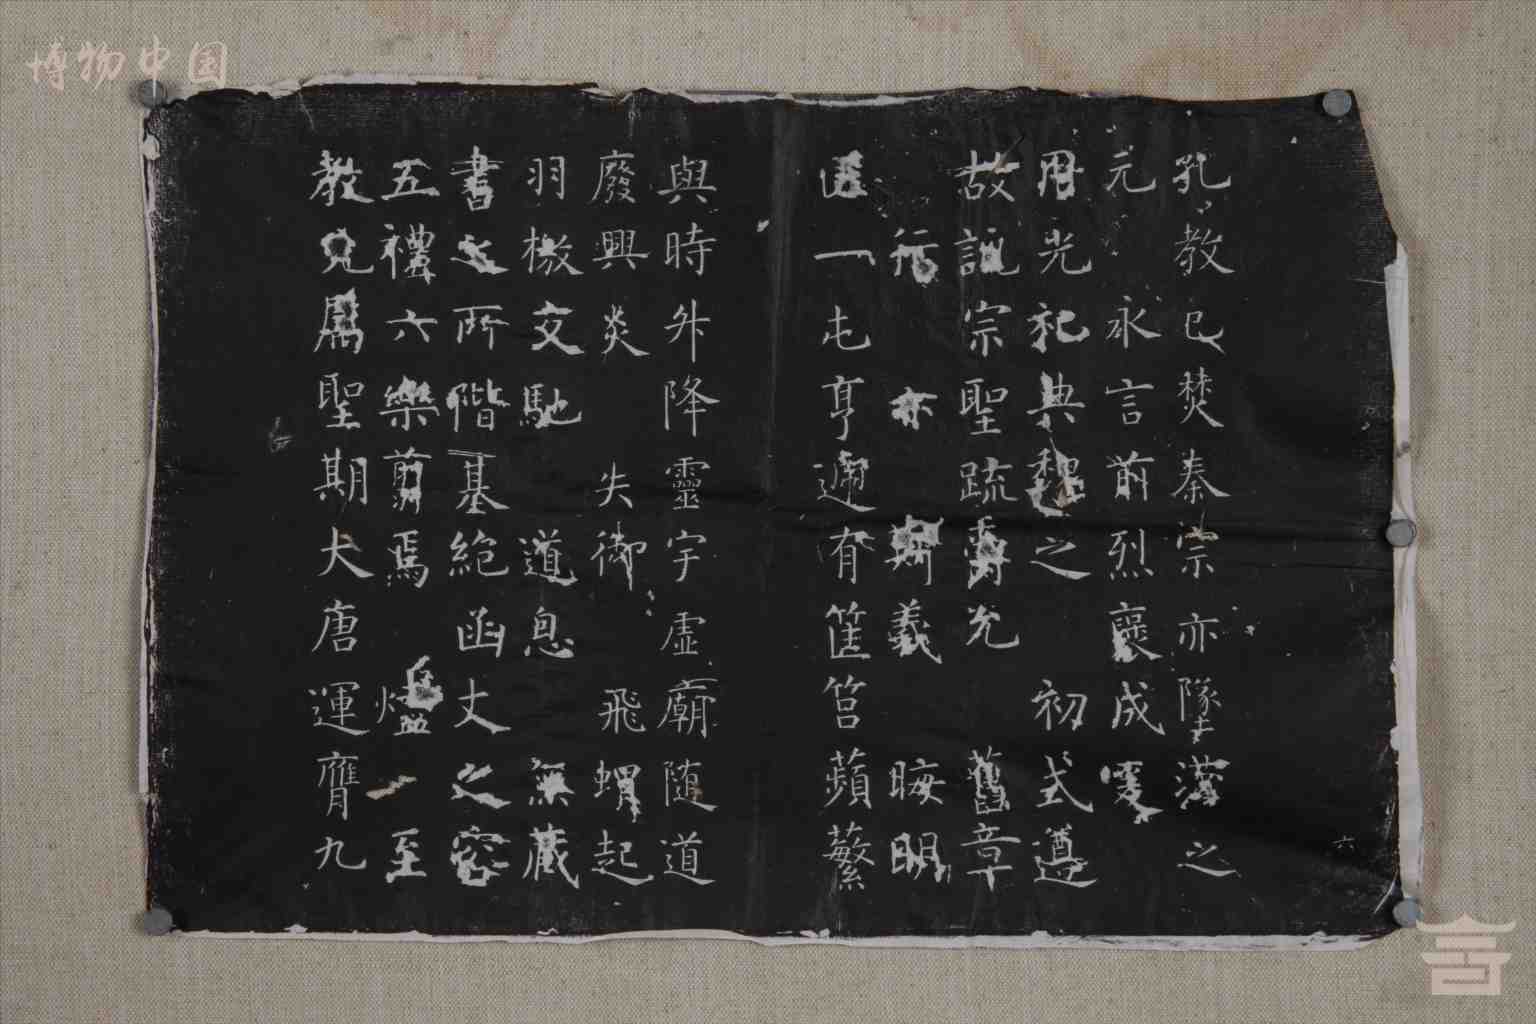 博物中国
孔教已焚秦宗亦墜漢之
元永言前烈褒成爰
用光祀典魏之初式遵
故訓宗聖疏爵允舊章
行亦斯義晦明
匪一屯亨遞有筐筥蘋蘩
與時升降靈宇虛廟隨道
廢興炎失御飛蝟起
羽檄交馳道息無藏
書之所階基絕函丈之容
五禮六樂剪焉至
教允屬聖期大唐運膺九
六